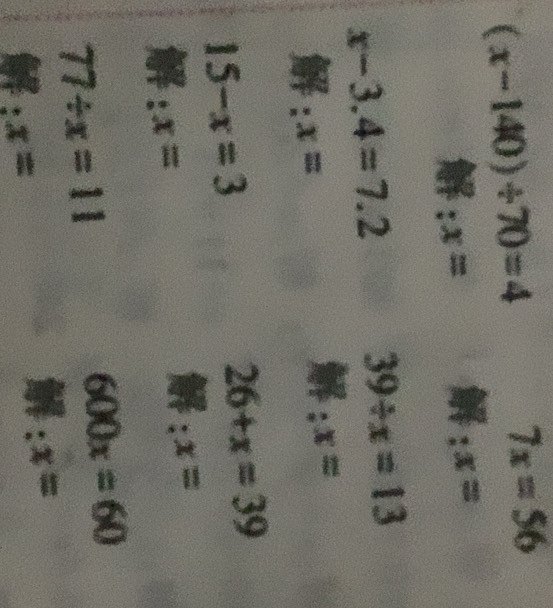 (x-140)÷70=4
7x=56
解:x=
解:x=
x-3.4=7.2
39÷x=13
解:x=
解:x=
15-x=3
26+x=39
解:x=
解:x=
77÷x=11
600x=60
解:x=
解:x=